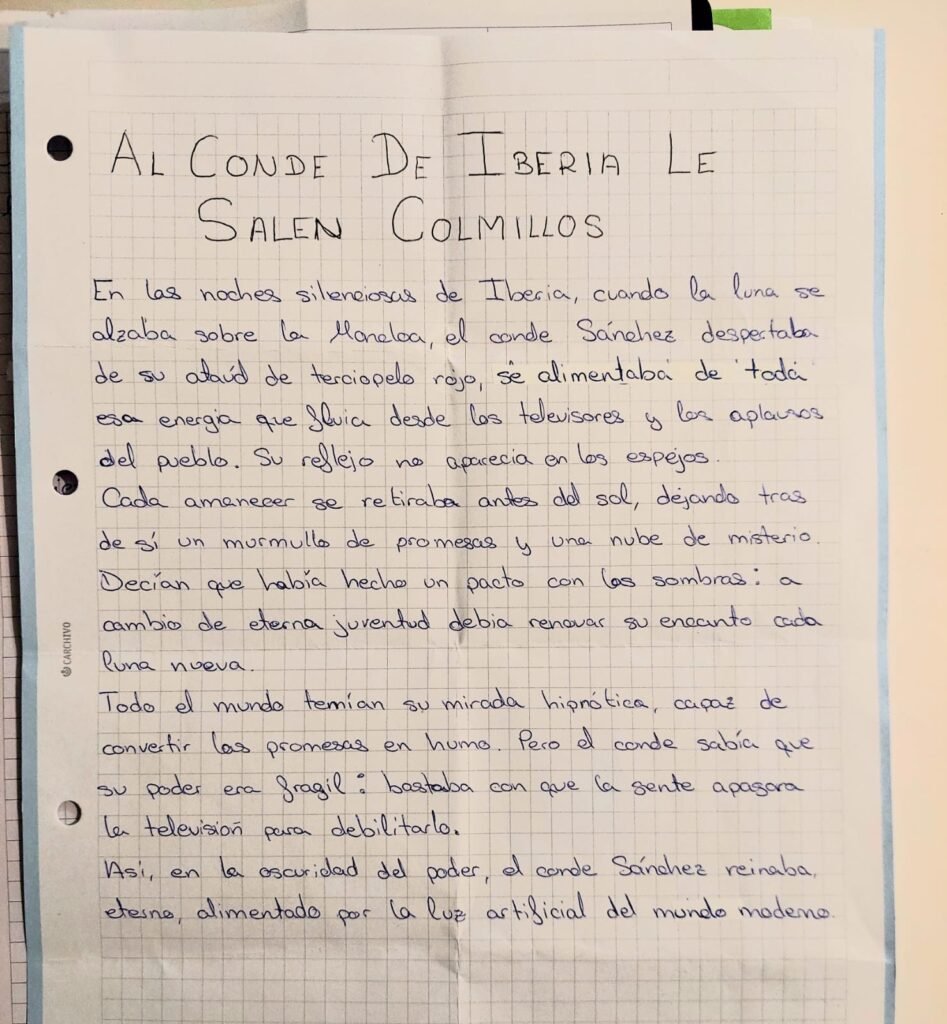 AL CONDE DE IBERIA LE
SALEN COLMILLOS
En las noches silenciosas de Iberia, cuando la luna se
alzaba sobre la Moncloa, el conde Sánchez despertaba
de su ataúd de terciopelo rojo, se alimentaba de toda
esa energia que fluia desde los televisores y los aplausos
del pueblo. Su reflejo no aparecia en los espejos.
Cada amanecer se retiraba antes del sol, dejando tras
de sí un murmullo de promesas y una nube de misterio.
Decían que había hecho un pacto con las sombras: a
cambio de eterna juventud debia renovar su encanto cada
luna nueva.
Todo el mundo temían su mirada hipnótica, capaz de
convertir las promesas en humo. Pero el conde sabía que
su poder era fragil: bastaba con que la gente apagara
la televisión para debilitarlo.
Asi, en la oscuridad del poder, el conde Sánchez reinaba,
eterno, alimentado por la luz artificial del mundo moderno.
CARCHIVO